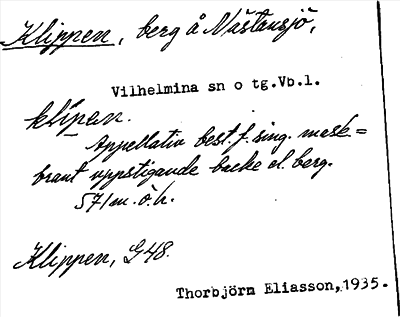 Klippen, berg å Nästansjö,
Vilhelmina sn o tg.Vb.l.
klípan.
Appellativ best. f. sing. mask =
brant uppstigande backe el. berg.
571 m. ö. h.
Klippen, G 48.
Thorbjörn Eliasson, 1935.